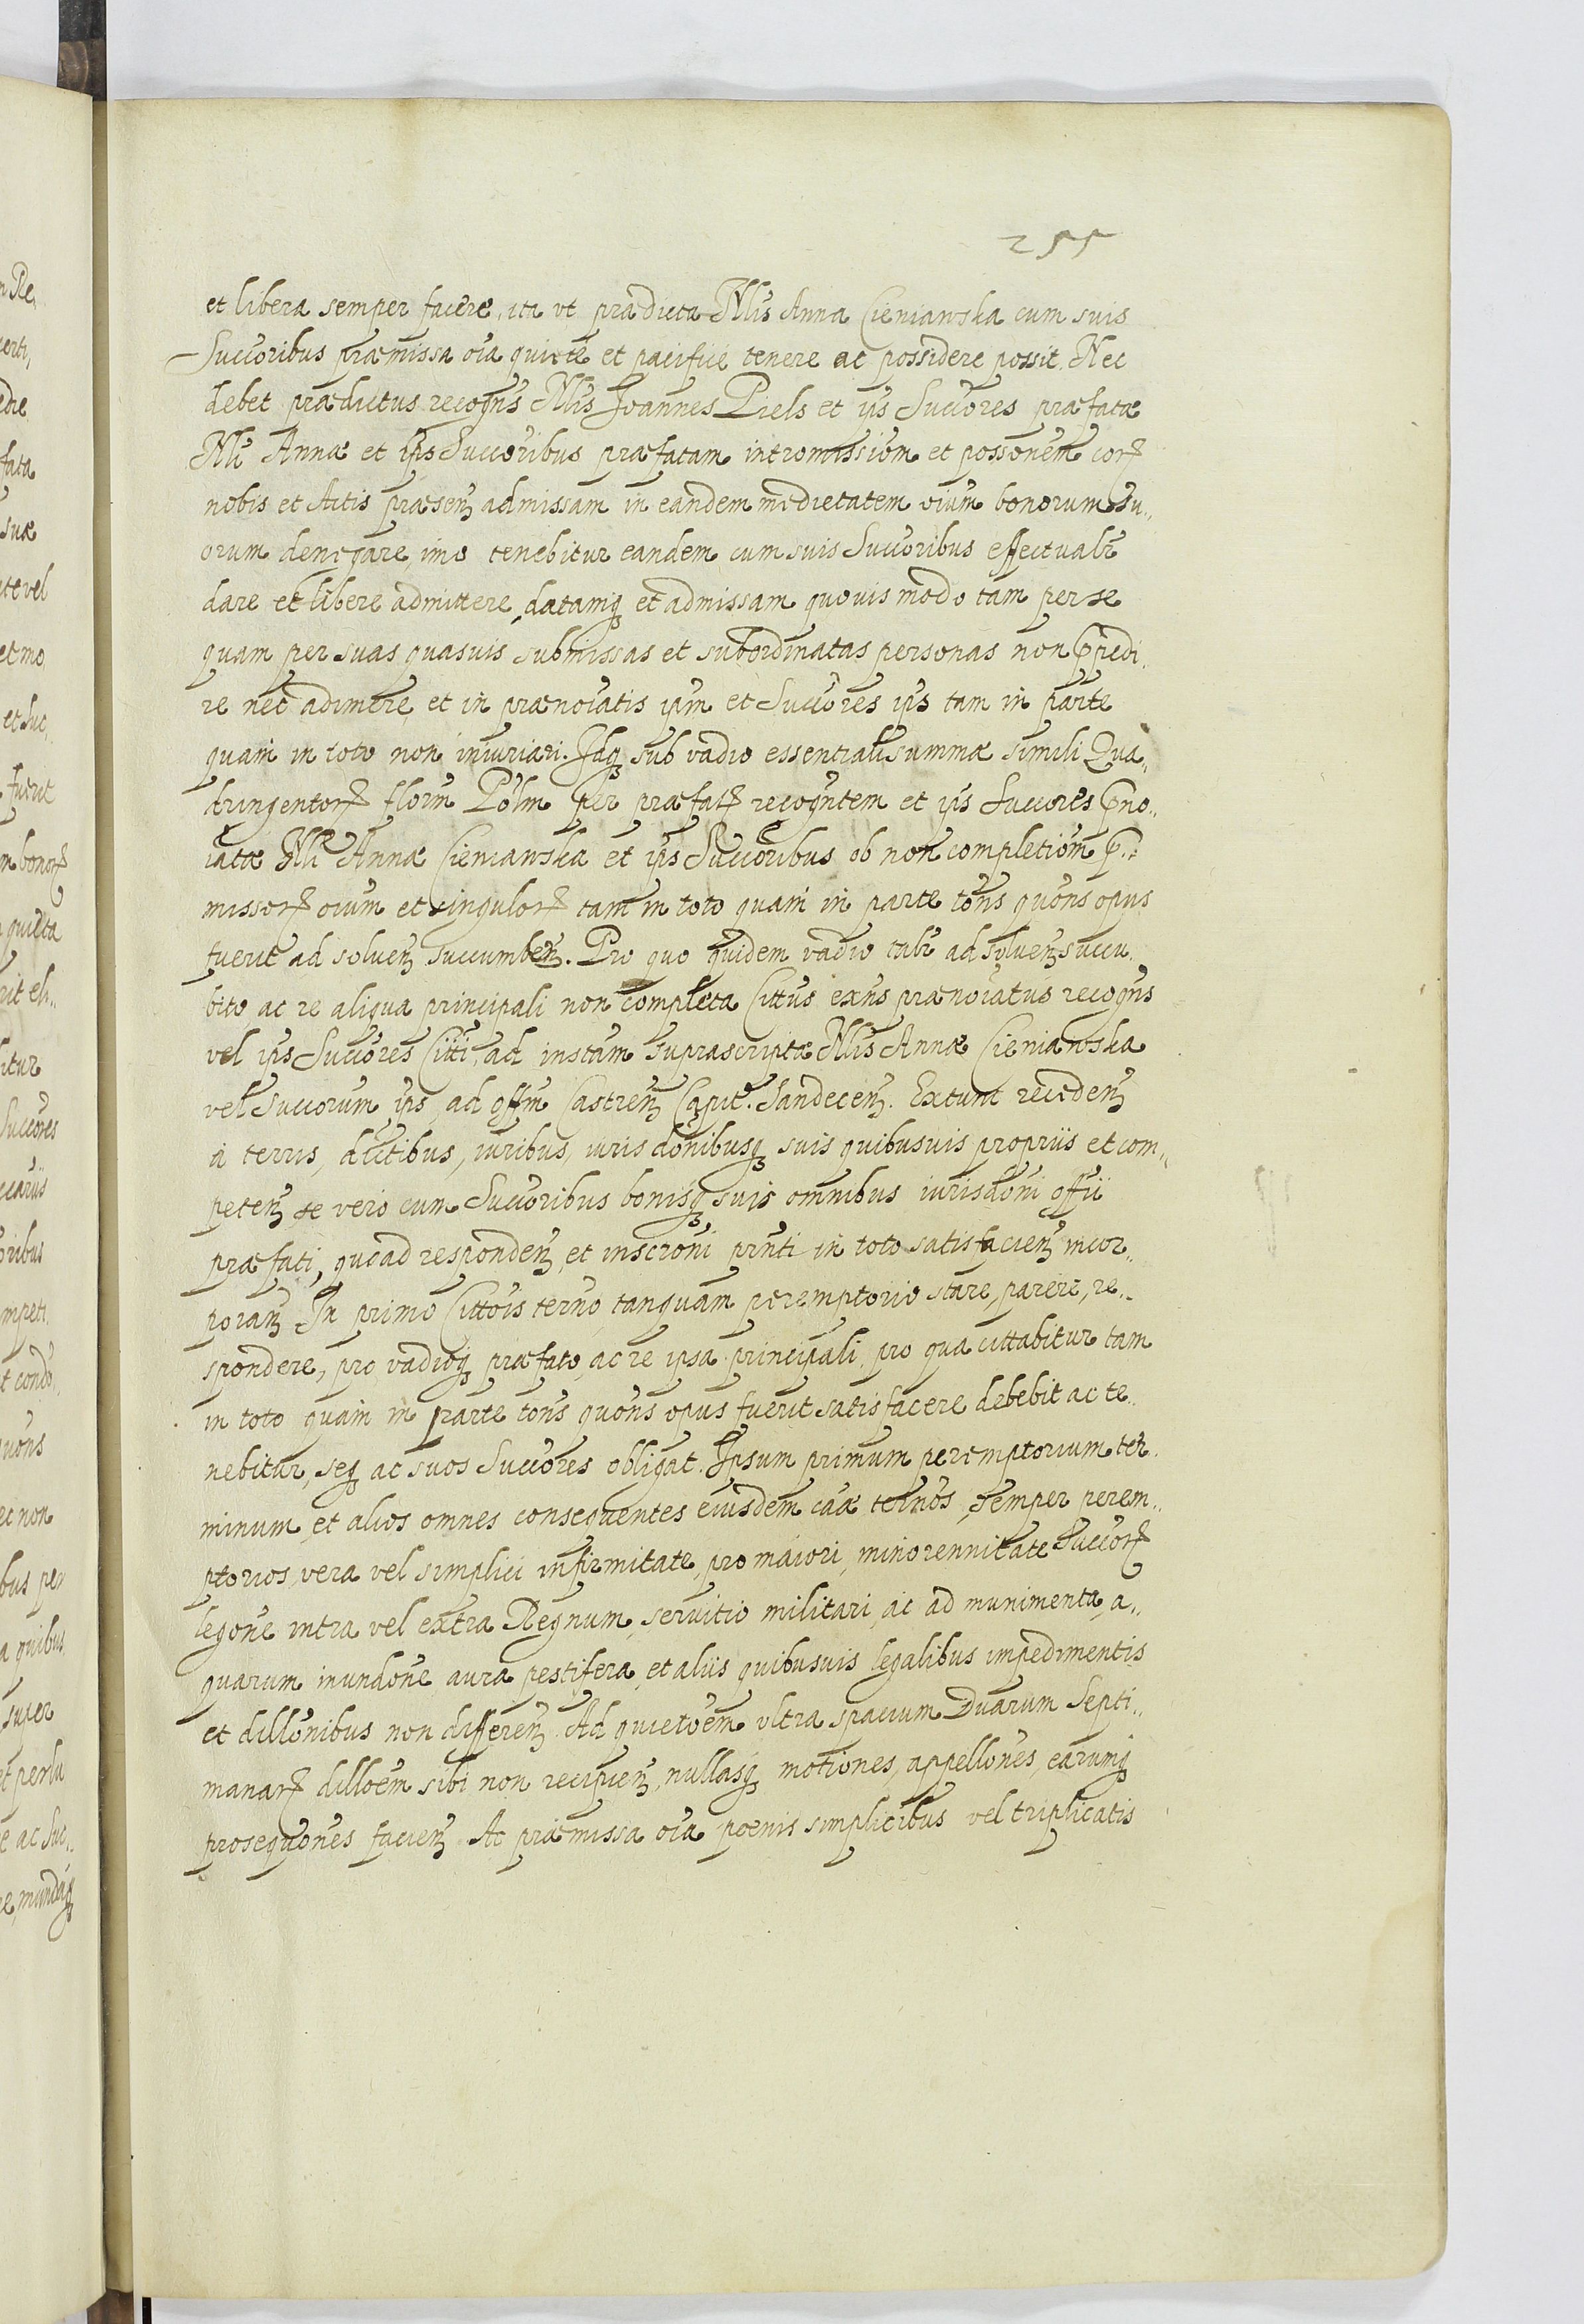 255
et libera semper facere, ita vt prædicta Nlis Anna Cieniawska cum suis
Succoribus præmissa oia quiete et pacifice tenere ac possidere possit. Nec
debet prædictus recogns Nlis Joannes Piels et ips Succores præfatæ
Nli Annæ et ips Succoribus præfatam intromissiom et possonem cor
nobis et Actis præsen admissam in eandem medietatem oium bonorum su..
orum denegare, imo tenebitur eandem cum suis Succoribus effectualr
dare et libere admittere, datamq et admissam quovis modo tam per se
quam per suas quasuis submissas et subordinatas personas non ppedi..
re nec adimere et in prænoiatis ipm et Succores ips tam in parte
quam in toto non iniuriari. Idq sub vadio essentiali summæ simili Qua..
dringentor florin Polm per præfat recogntem et ips Succores pno..
iatæ Nli Annæ Cieniawska et ips Succoribus ob non completiom p..
missor oium et singulor tam in toto quam in parte tons quons opus
fuerit ad soluen succumben. Pro quo quidem vadio talr ad soluen succu..
bito ac re aliqua principali non completa Cittus exns prænoiatus recogns
vel ips Succores Citti, ad instam suprascriptæ Nlis Annæ Cieniawska
vel Succorum ips, ad offm Castren Capit. Sandecen. Extunc receden
a terris, distibus, iuribus, iuris donibusq suis quibusuis propriis et com..
peten se vero cum Succoribus bonisq suis omnibus iurisdoni offii
præfati, quoad responden, et inscroni prnti in toto satisfacien incor..
poran In primo Cittois terno, tanquam peremptorio stare, parere, re..
spondere, pro vadioq præfato, ac re ipsa principali, pro qua cittabitur tam
in toto quam in parte tons quons opus fuerit satisfacere debebit ac te..
nebitur, seq ac suos Succores obligat. Ipsum primum peremptorium ter..
minum, et alios omnes consequentes eiusdem caæ ternos, semper perem..
ptorios, vera vel simplici infirmitate, pro maiori, minorennitate Succor
legone intra vel extra Regnum, seruitio militari, ac ad munimenta, a..
quarum inundone aura pestifera, et aliis quibusuis legalibus impedimentis
et dillonibus non differen Ad quietoem vltra spacium Duarum Septi..
manar dilloem sibi non recipien, nullasq motiones, appellones, earumq
prosequones facien Ac præmissa oia poenis simplicibus vel triplicatis